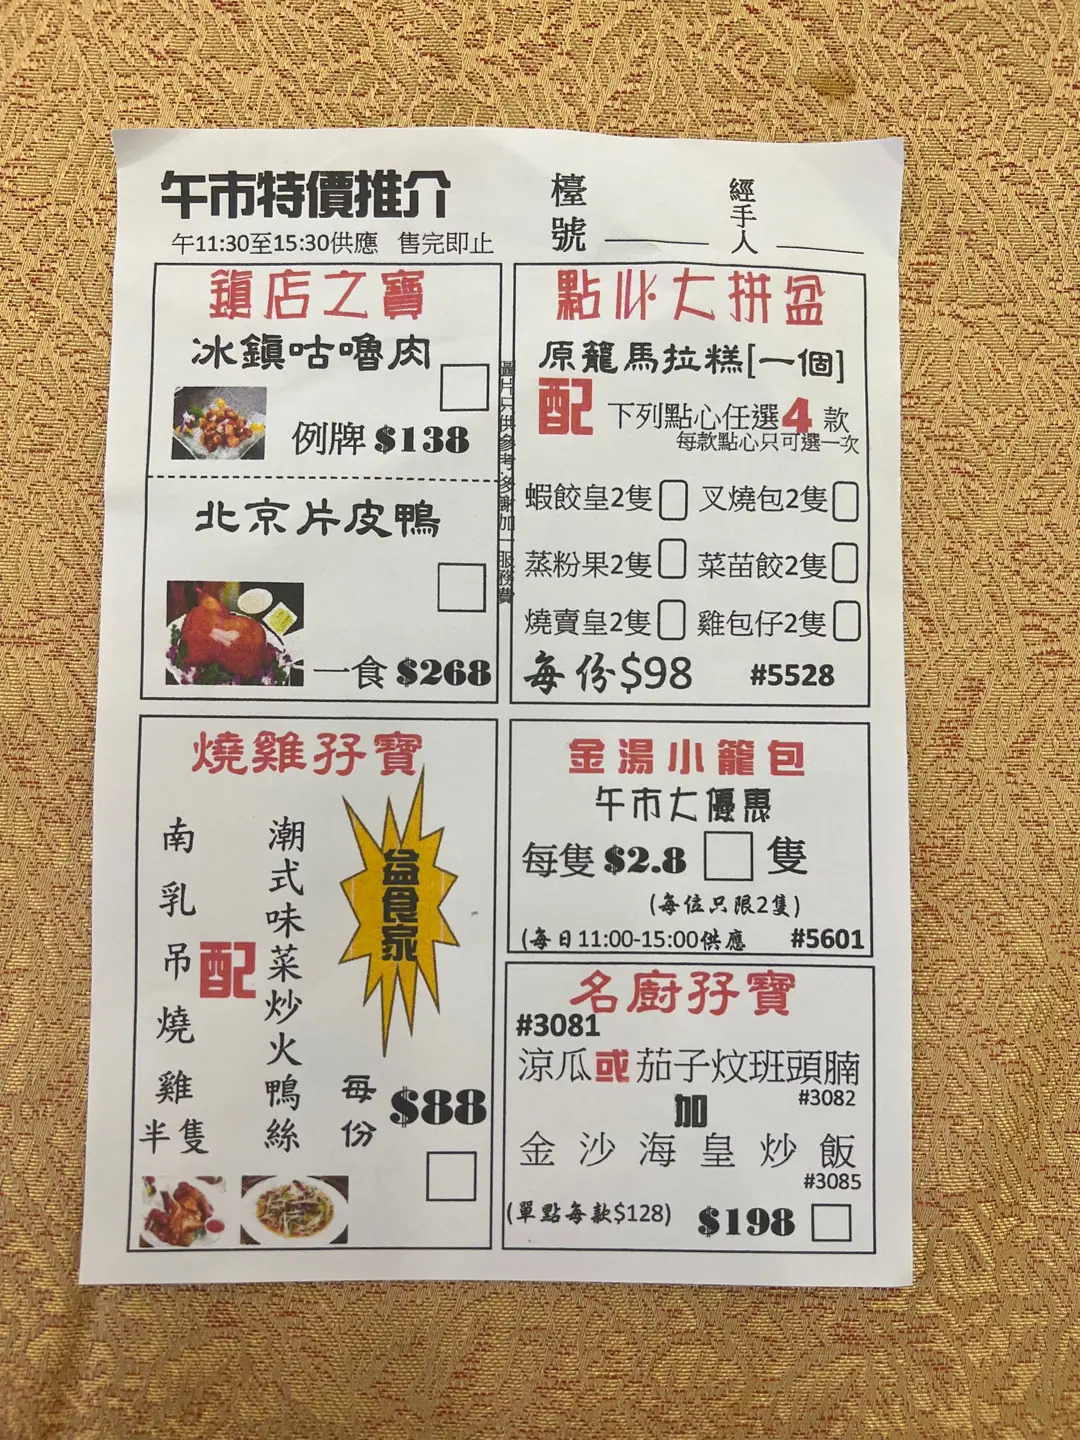 午市特價推介
午11:30至15:30供應 售完即止
檯號
經手人
鎮店之寶
冰鎮咕嚕肉
例牌 $138
北京片皮鴨
一食 $268
圖片只供參考.多謝加一服務費
點心大拼盆
原籠馬拉糕[一個]
配 下列點心任選4款
每款點心只可選一次
蝦餃皇2隻 叉燒包2隻
蒸粉果2隻 菜苗餃2隻
燒賣皇2隻 雞包仔2隻
每份$98 #5528
燒雞孖寶
南乳吊燒雞半隻
配
潮式味菜炒火鴨絲
益食家
每份 $88
金湯小籠包
午市大優惠
每隻 $2.8 隻
(每位只限2隻)
(每日11:00-15:00供應 #5601
名廚孖寶
#3081
涼瓜或茄子炆班頭腩
#3082
加
金沙海皇炒飯
#3085
(單點每款$128) $198